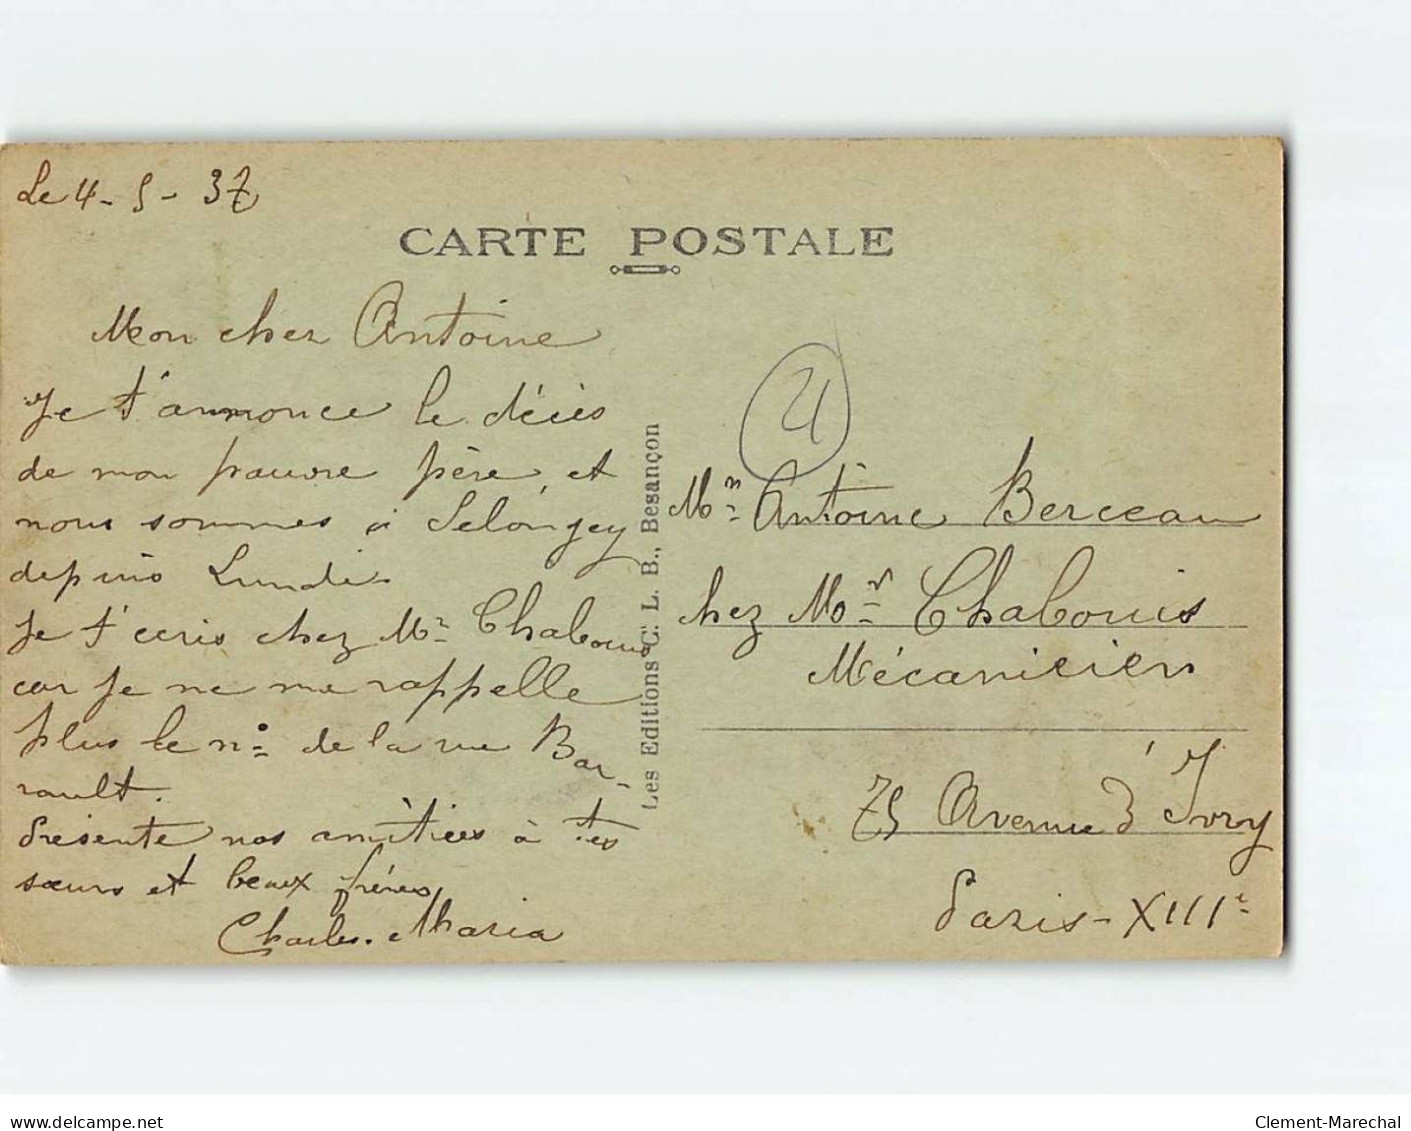 Le 4-5-37
CARTE POSTALE
Mon cher Antoine
Je t'annonce le décès
de mon pauvre père, et
nous sommes à Selongey
depuis Lundi.
Je t'ecris chez Mr Chabouis
car je ne me rappelle
plus le n° de la rue Bar-
rault.
Présente nos amitiées à tes
sœurs et beaux frères
Charles. Maria
Les Editions C. L. B., Besançon
21
Mon Antoine Berceau
chez Mor Chabouis
Mécanicien
75 Avenue d'Ivry
Paris - XIIIe
www.delcampe.net
Clement-Marechal